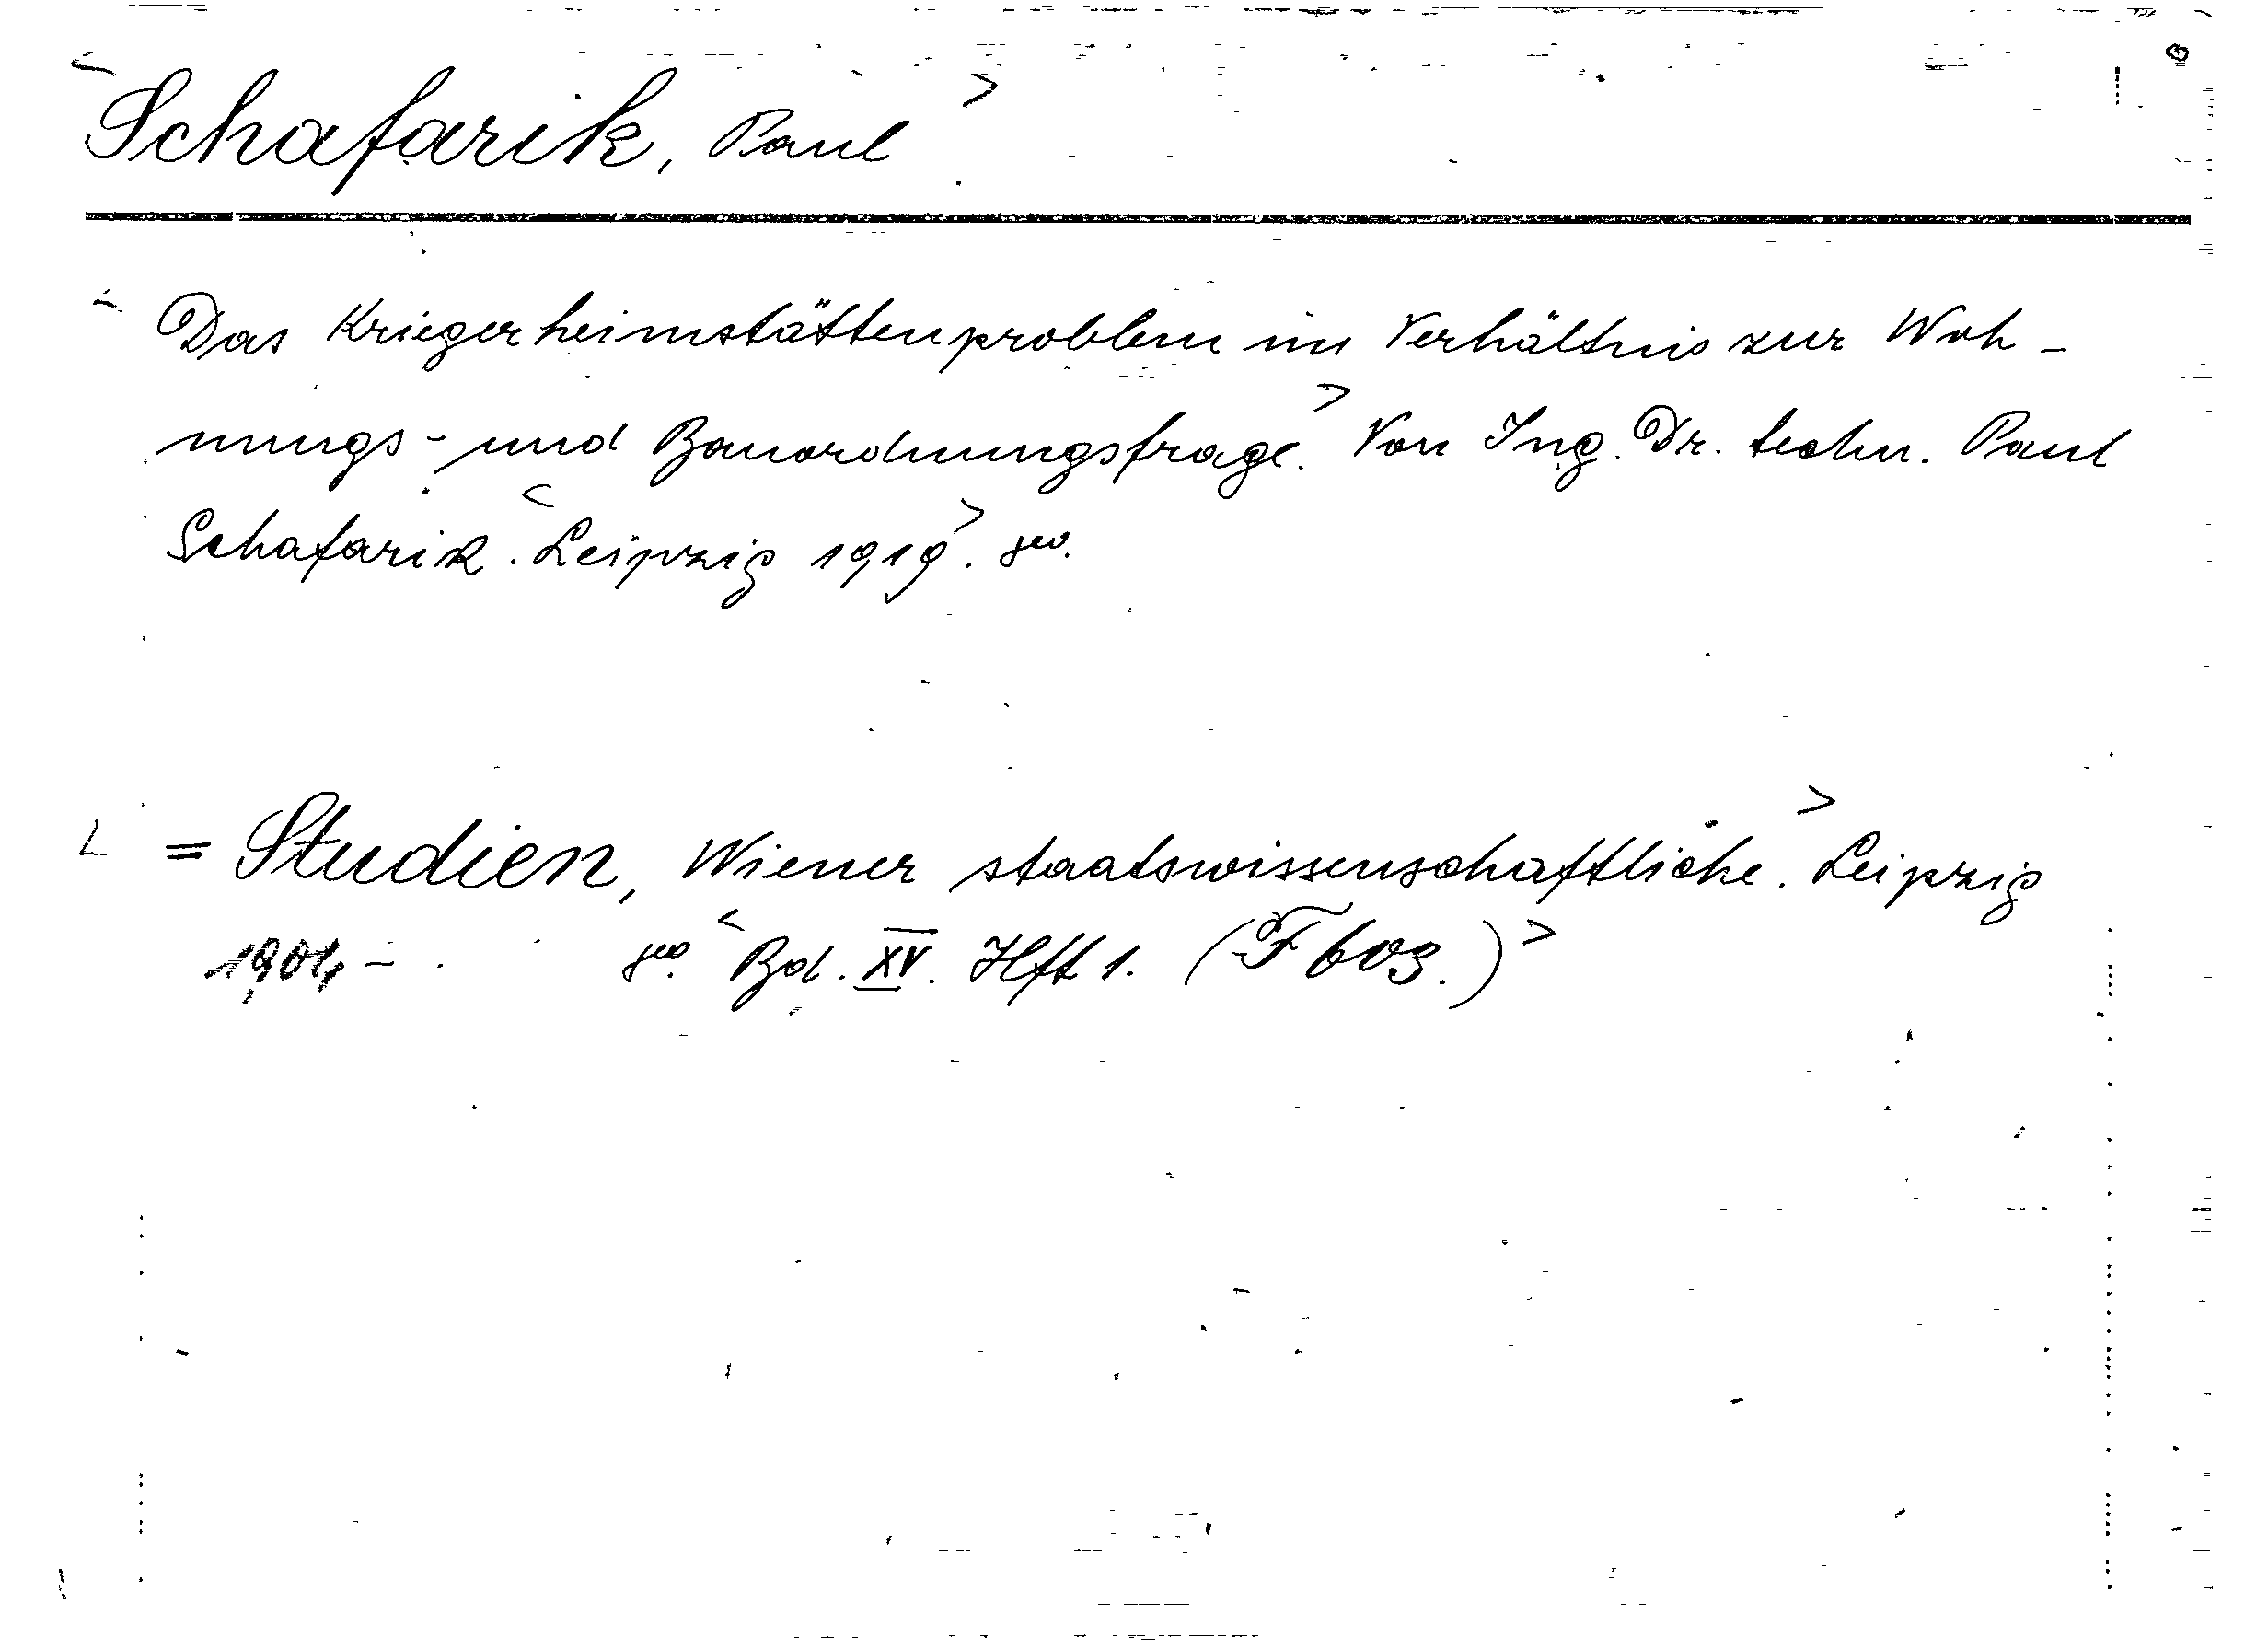 <Schafarik, Paul>
<Das Kriegerheimstättenproblem im Verhältnis zur Woh-
nungs- und Bauordnungsfrage.> Von Ing. Dr. techn. Paul
Schafarik. <Leipzig 1919>. 8vo.
<= Studien, Wiener staatswissenschaftliche.> Leipzig
1901- . 8vo. <Bd. XV. Hft 1. (F 603.)>